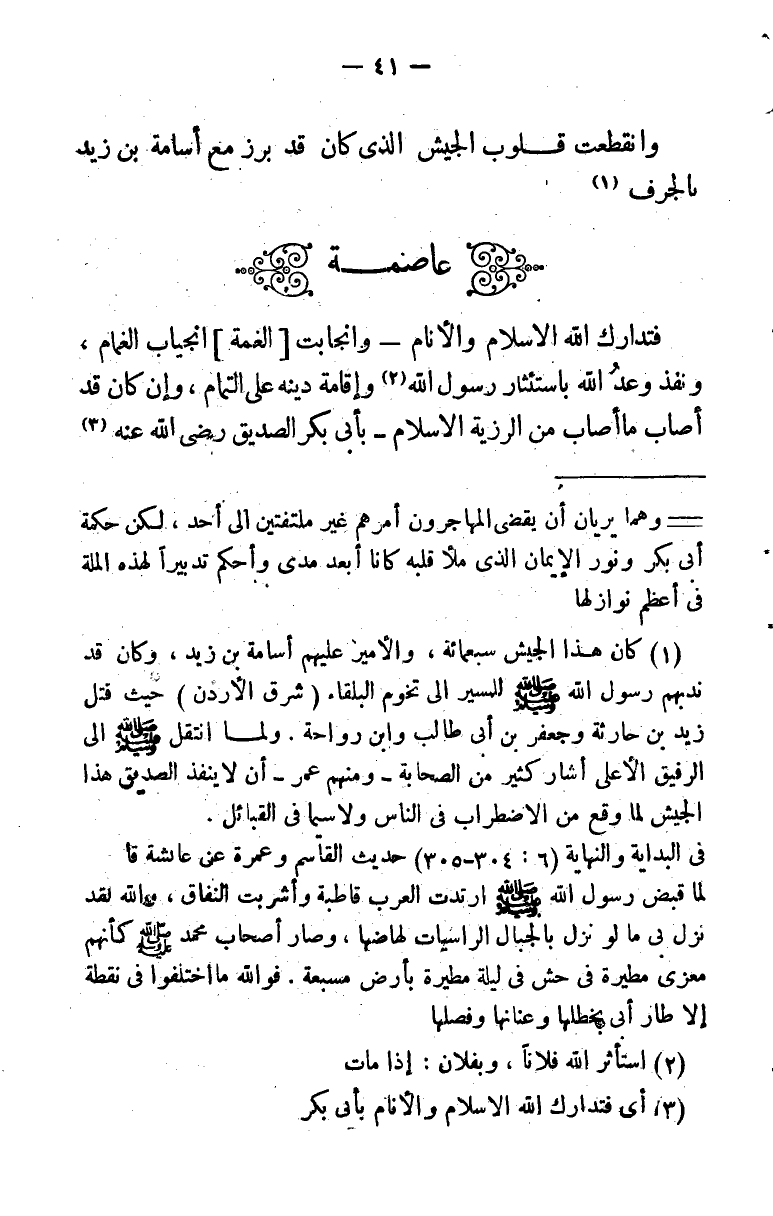 — ٤١ —
وانقطعت قلوب الجيش الذى كان قد برز مع أسامة بن زيد
بالجرف (١)
عاصمة
فتدارك الله الاسلام والأنام — وانجابت [ الغمة ] انجياب الغمام ،
ونفذ وعدُ الله باستئثار رسول الله (٢) وإقامة دينه على التمام ، وإن كان قد
أصاب ما أصاب من الرزية الاسلام - بأبى بكر الصديق رضى الله عنه (٣)
== وهما يريان أن يقضى المهاجرون أمرهم غير ملتفتين الى أحد ، لكن حكمة
أبى بكر ونور الإيمان الذى ملأ قلبه كانا أبعد مدى وأحكم تدبيراً لهذه الملة
فى أعظم نوازلها
(١) كان هذا الجيش سبعمائة ، والأمير عليهم أسامة بن زيد ، وكان قد
ندبهم رسول الله ﷺ للسير الى تخوم البلقاء ( شرق الأردن ) حيث قتل
زيد بن حارثة وجعفر بن أبى طالب وابن رواحة . ولما انتقل ﷺ الى
الرفيق الأعلى أشار كثير من الصحابة - ومنهم عمر - أن لا ينفذ الصديق هذا
الجيش لما وقع من الاضطراب فى الناس ولاسيما فى القبائل .
فى البداية والنهاية (٦ : ٣٠٤-٣٠٥) حديث القاسم وعمرة عن عائشة قا
لما قبض رسول الله ﷺ ارتدت العرب قاطبة وأشربت النفاق ، والله لقد
نزل بى ما لو نزل بالجبال الراسيات لهاضها ، وصار أصحاب محمد ﷺ كأنهم
معزى مطيرة فى حش فى ليلة مطيرة بأرض مسبعة . فوالله ما اختلفوا فى نقطة
إلا طار أبى بخطلها وعنانها وفصلها
(٢) استأثر الله فلاناً ، وبفلان : إذا مات
(٣) أى فتدارك الله الاسلام والأنام بأبى بكر